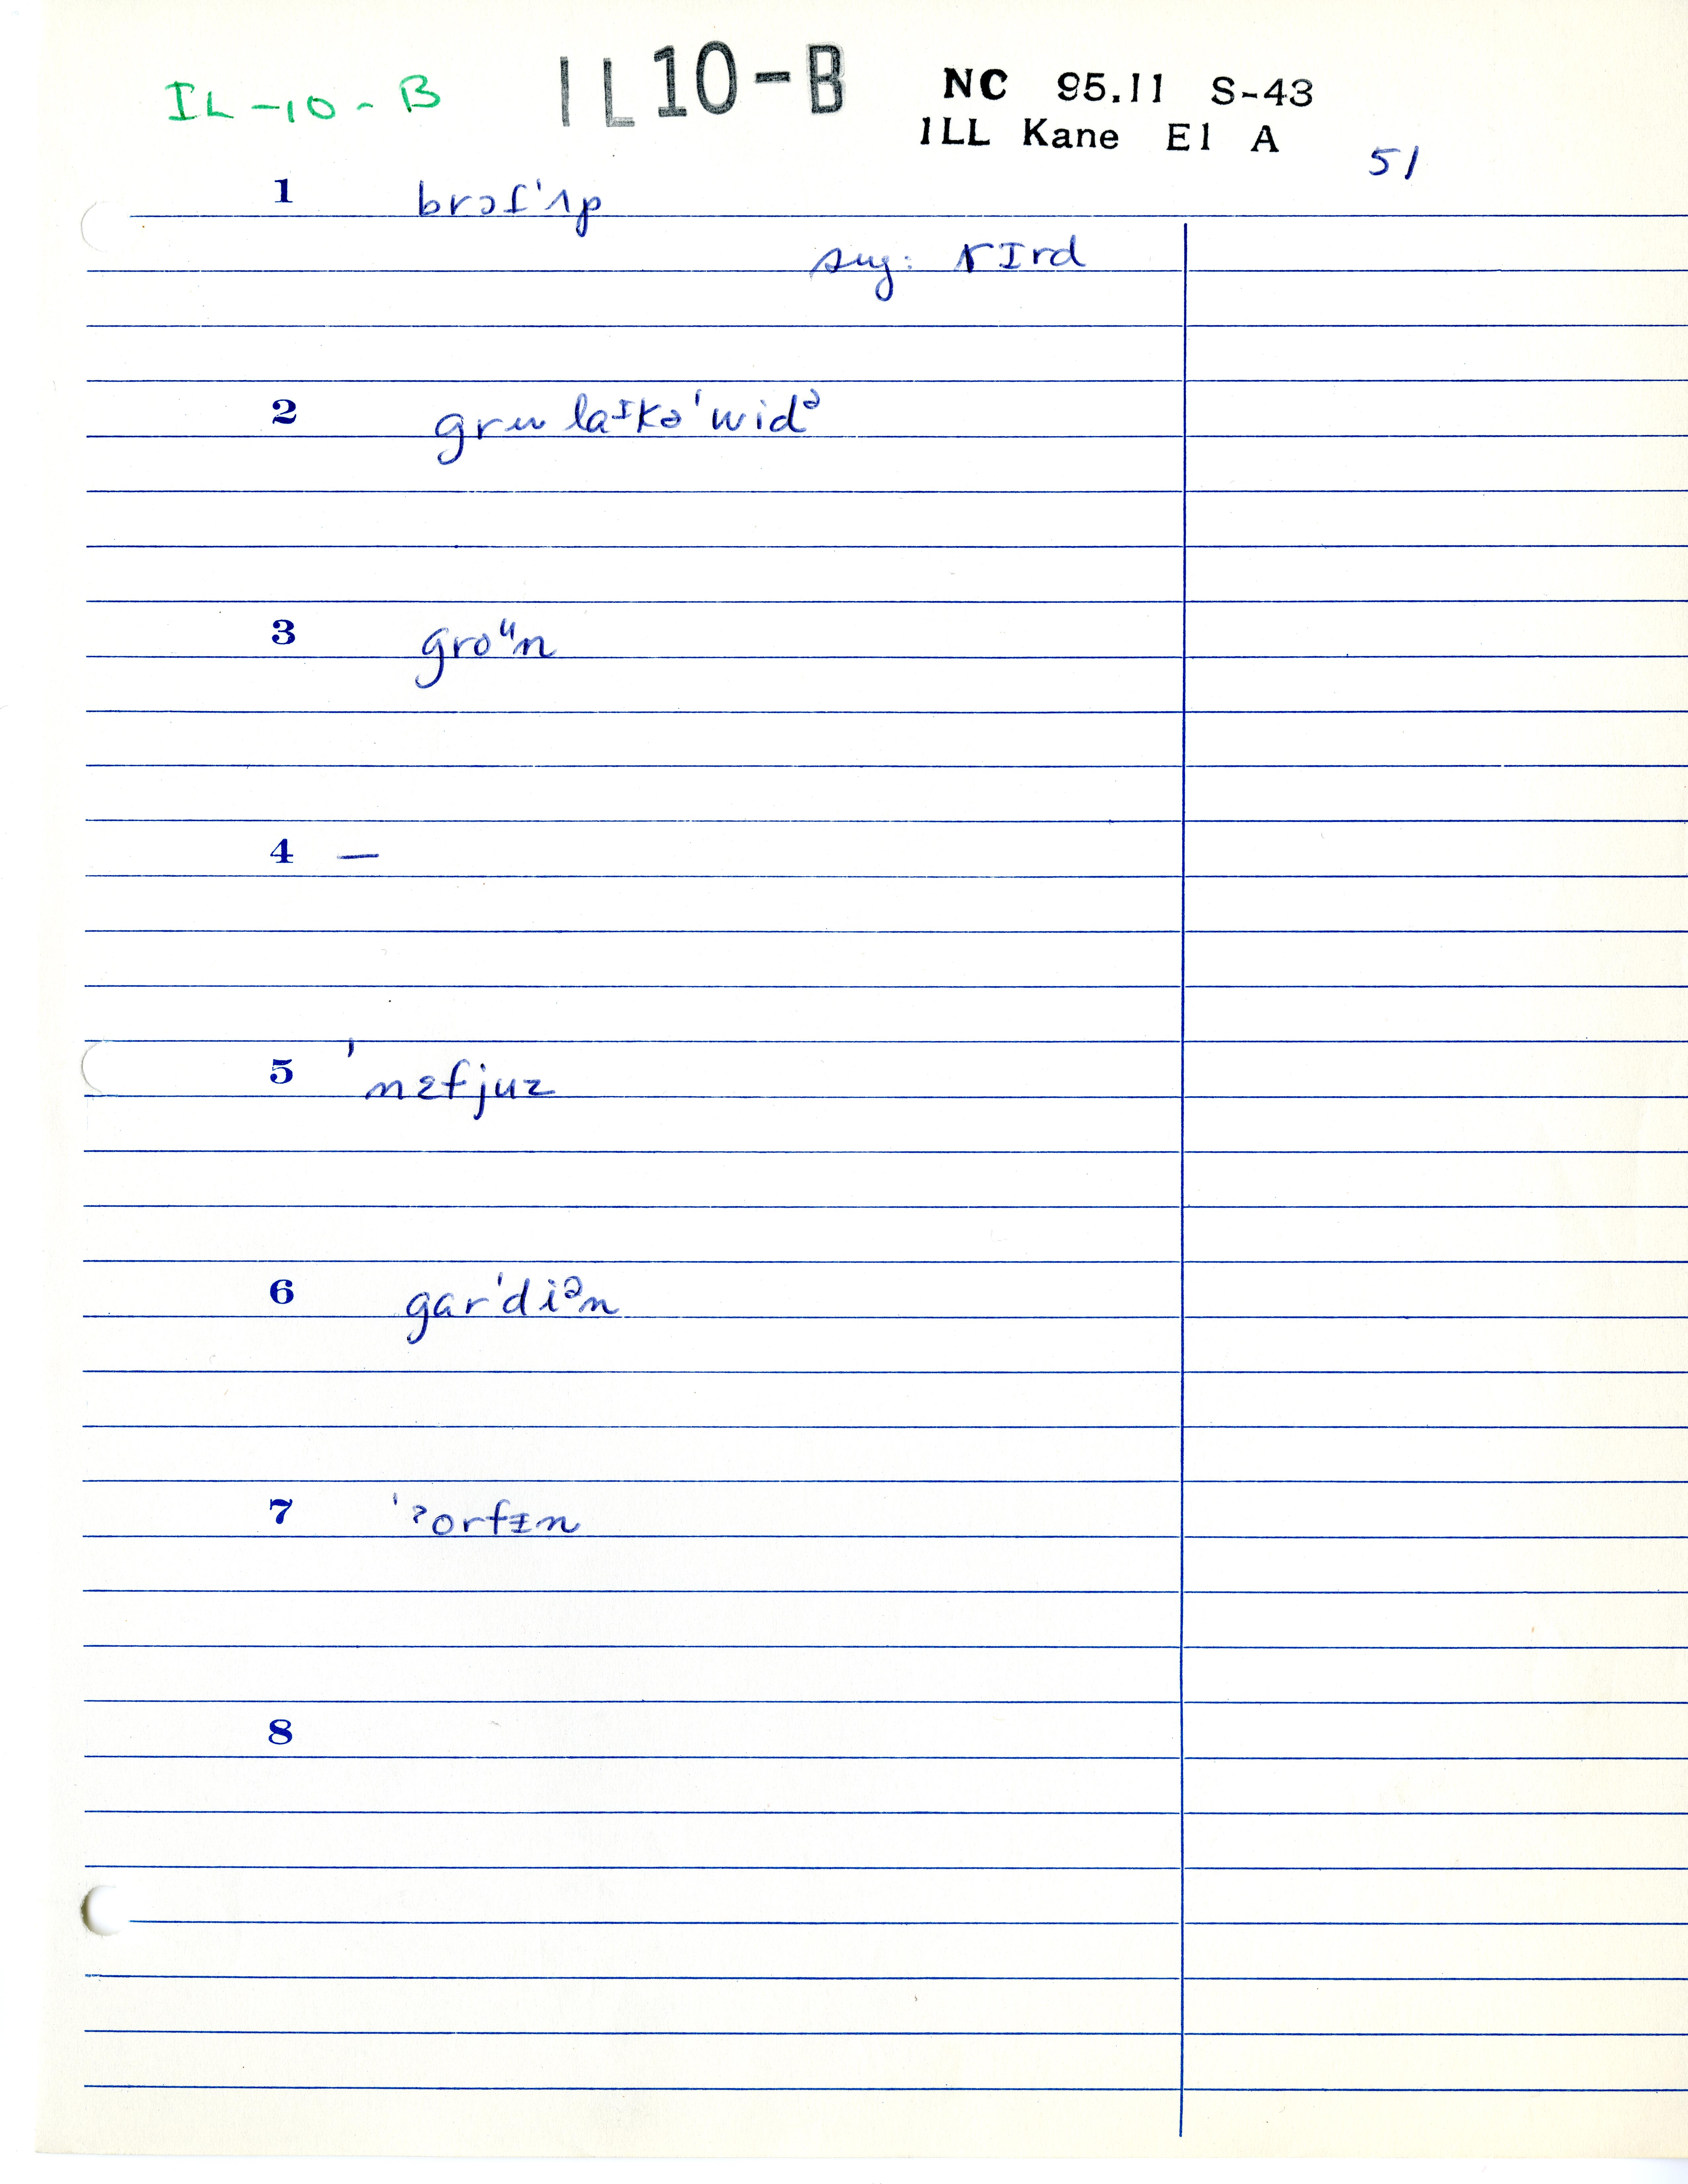 IL-10-B IL10-B NC 95.11 S-43
ILL Kane El A
51
1 brɔt'ʌp
sug: rɪrd
2 gru laᶦkə'widᵊ
3 groᵘn
4 —
5 'nɛfjuz
6 gar'diᵊn
7 'ʔorfɪn
8